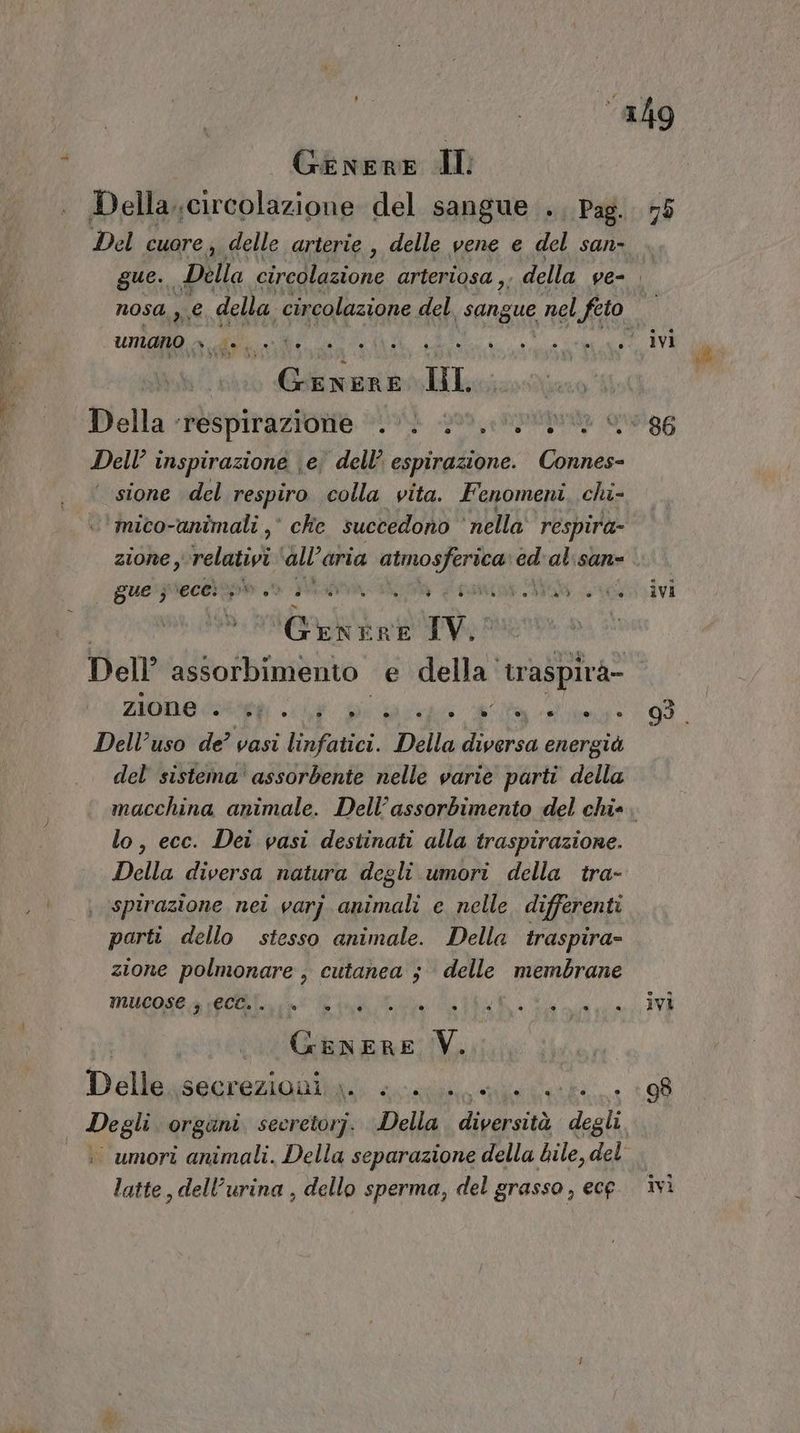 149
GENERE II.
Della circolazione del sangue . Pag. 75
Del cuore, delle arterie, delle vene e del san-
gue. Della circolazione arteriosa, della ve-
nosa, e della circolazione del sangue nel feto
umano . . . . . . . . . . ivi
GENERE III.
Della respirazione . . . . . . . 86
Dell' inspirazione e dell' espirazione. Connes-
sione del respiro colla vita. Fenomeni chi-
mico-animali, che succedono nella respira-
zione, relativi all'aria atmosferica ed al san-
gue, ecc. . . . . . . . . . ivi
GENERE IV.
Dell' assorbimento e della traspira-
zione . . . . . . . . . . . 93
Dell'uso de' vasi linfatici. Della diversa energia
del sistema assorbente nelle varie parti della
macchina animale. Dell'assorbimento del chi-
lo, ecc. Dei vasi destinati alla traspirazione.
Della diversa natura degli umori della tra-
spirazione nei varj animali e nelle differenti
parti dello stesso animale. Della traspira-
zione polmonare, cutanea; delle membrane
mucose, ecc. . . . . . . . . . ivi
GENERE V.
Delle secrezioni . . . . . . . . 98
Degli organi secretorj. Della diversità degli
umori animali. Della separazione della bile, del
latte, dell'urina, dello sperma, del grasso, ecc. ivi